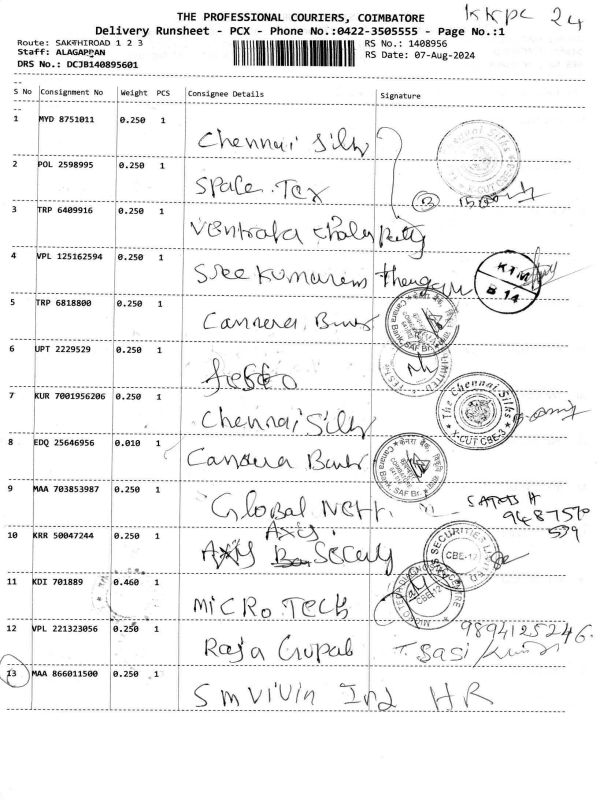 KKPC 24
THE PROFESSIONAL COURIERS, COIMBATORE
Delivery Runsheet - PCX - Phone No.:0422-3505555 - Page No.:1
Route: SAKTHIROAD 1 2 3
Staff: ALAGAPPAN
DRS No.: DCJB140895601
RS No.: 1408956
RS Date: 07-Aug-2024
S No Consignment No Weight PCS Consignee Details Signature
1 MYD 8751011 0.250 1 Chennai Silks
2 POL 2598995 0.250 1 Space Tex
3 TRP 6409916 0.250 1
4 VPL 125162594 0.250 1 Sree Kumaran Thangam
KTM
B 14
5 TRP 6818800 0.250 1 Cannera Bank
6 UPT 2229529 0.250 1
7 KUR 7001956206 0.250 1 Chennai Silks
The Chennai Silks
X-CUT CBE-3
8 EDQ 25646956 0.010 1 Cannera Bank
Canara Bank, SAF Br
9 MAA 703853987 0.250 1 Global Nett
9487570
539
10 KRR 50047244 0.250 1 Axis Security
SECURITIES LIMITED
CBE-12
11 KDI 701889 0.460 1 Micro Teck
CBE-12
12 VPL 221323056 0.250 1 Raja Gupal
9894125246
T. Sasi Kumar
13 MAA 866011500 0.250 1 Sm ViVin Ind HR